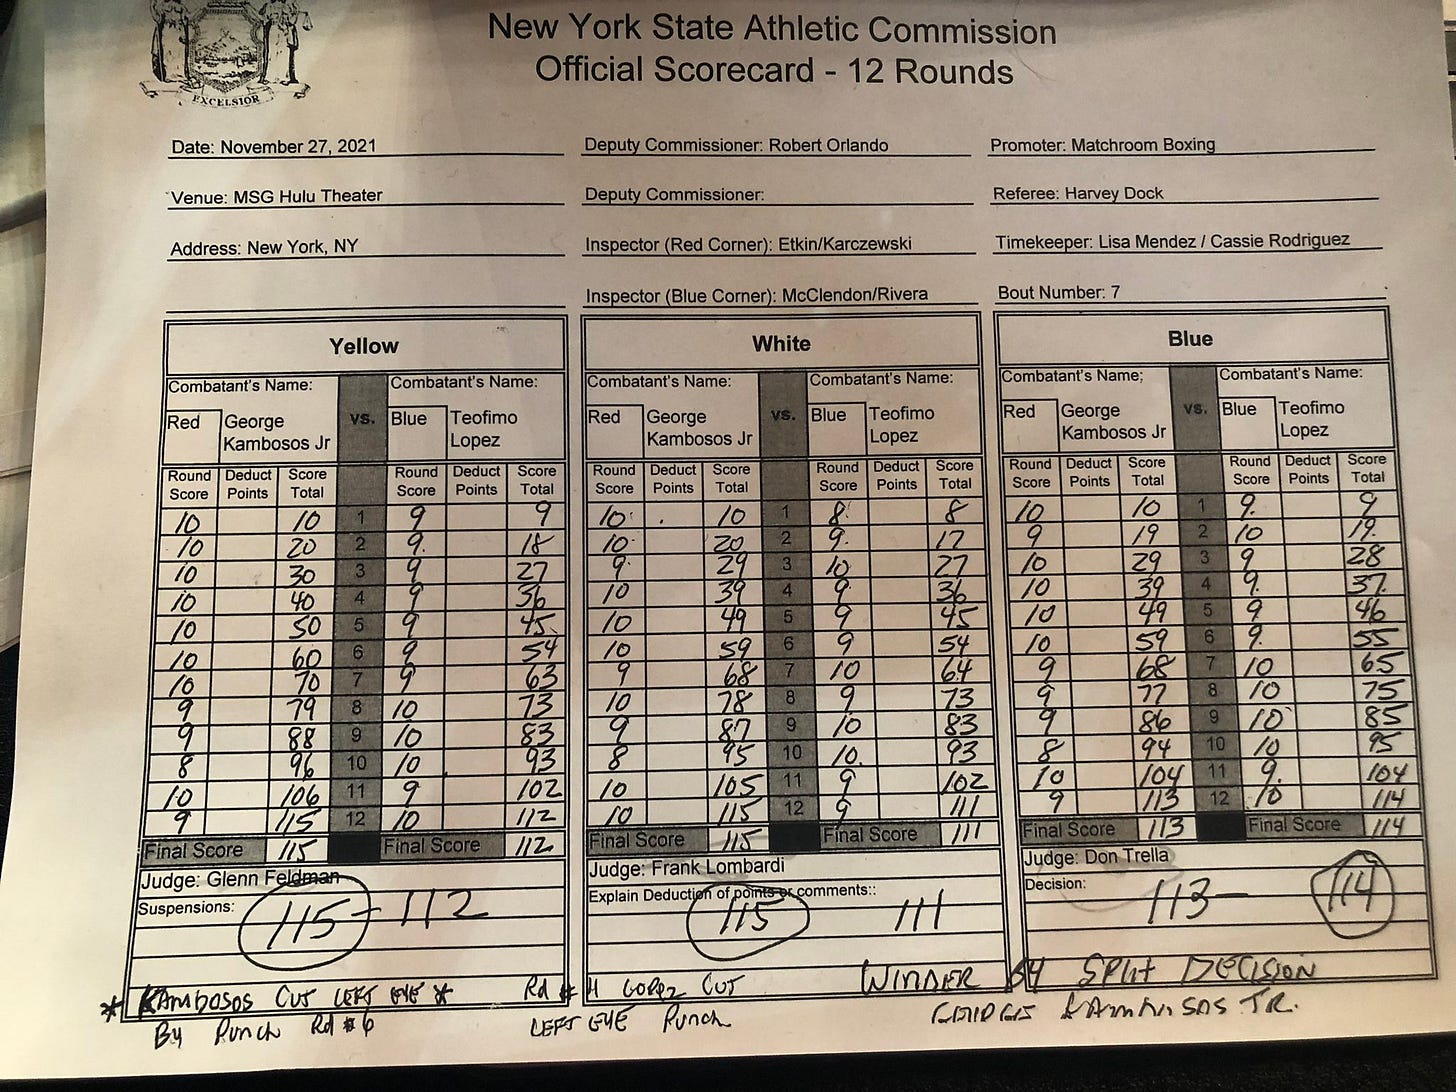 New York State Athletic Commission
Official Scorecard - 12 Rounds
EXCELSIOR
Date: November 27, 2021 Deputy Commissioner: Robert Orlando Promoter: Matchroom Boxing
Venue: MSG Hulu Theater Deputy Commissioner: Referee: Harvey Dock
Address: New York, NY Inspector (Red Corner): Etkin/Karczewski Timekeeper: Lisa Mendez / Cassie Rodriguez
Inspector (Blue Corner): McClendon/Rivera Bout Number: 7
Yellow White Blue
Combatant's Name: Combatant's Name: Combatant's Name: Combatant's Name: Combatant's Name; Combatant's Name:
Red George vs. Blue Teofimo Red George vs. Blue Teofimo Red George vs. Blue Teofimo
Kambosos Jr Lopez Kambosos Jr Lopez Kambosos Jr Lopez
Round Deduct Score Round Deduct Score Round Deduct Score Round Deduct Score Round Deduct Score Round Deduct Score
Score Points Total Score Points Total Score Points Total Score Points Total Score Points Total Score Points Total
10 10 1 9 9 10 10 1 8 8 10 10 1 9 9
10 20 2 9 18 10 20 2 9 17 9 19 2 10 19
10 30 3 9 27 9 29 3 10 27 10 29 3 9 28
10 40 4 9 36 10 39 4 9 36 10 39 4 9 37
10 50 5 9 45 10 49 5 9 45 10 49 5 9 46
10 60 6 9 54 10 59 6 9 54 10 59 6 9 55
10 70 7 9 63 9 68 7 10 64 9 68 7 10 65
9 79 8 10 73 10 78 8 9 73 9 77 8 10 75
9 88 9 10 83 9 87 9 10 83 9 86 9 10 85
8 96 10 10 93 8 95 10 10 93 8 94 10 10 95
10 106 11 9 102 10 105 11 9 102 10 104 11 9 104
9 115 12 10 112 10 115 12 9 111 9 113 12 10 114
Final Score 115 Final Score 112 Final Score 115 Final Score 111 Final Score 113 Final Score 114
Judge: Glenn Feldman Judge: Frank Lombardi Judge: Don Trella
Suspensions: Explain Deduction of points or comments:: Decision:
115 - 112 115 111 113 - 114
* KAMBOSOS CUT LEFT EYE * Rd # LOPEZ CUT WINNER BY SPLIT DECISION
By PUNCH Rd #6 LEFT EYE PUNCH KAMBOSOS JR.